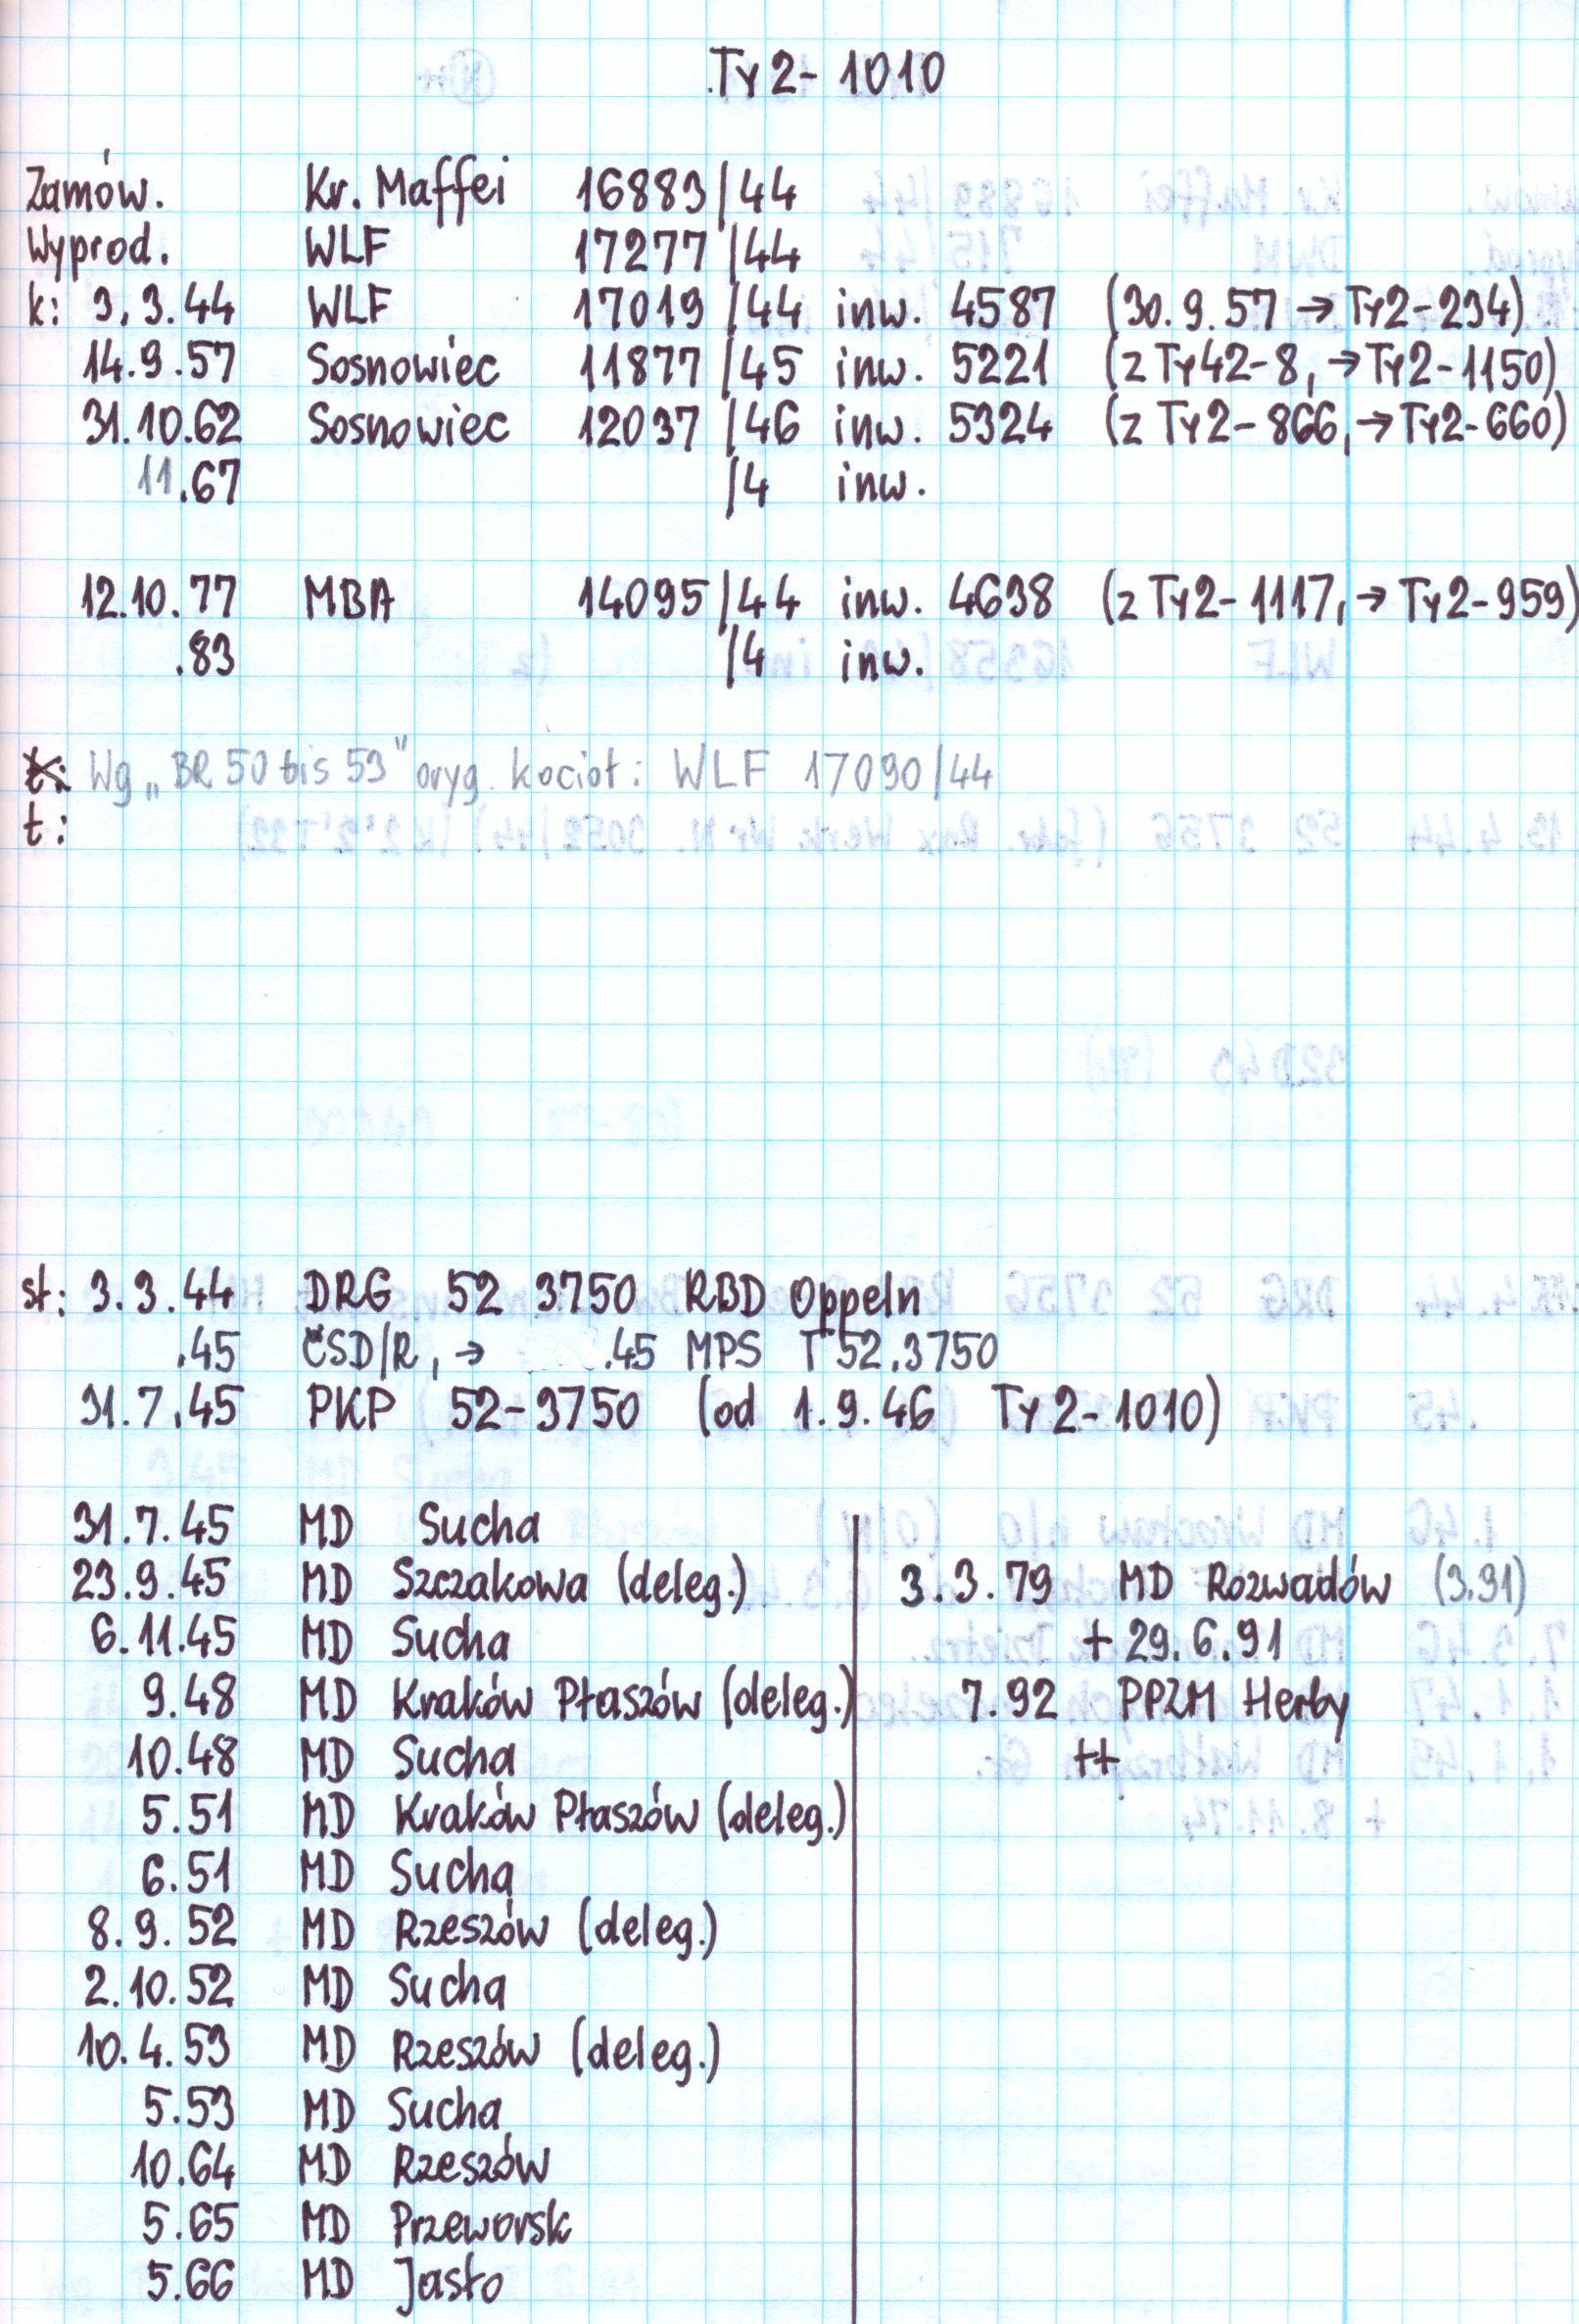 Ty2-1010
Zamów. Kr. Maffei 16883/44
Wyprod. WLF 17277/44
k: 3.3.44 WLF 17019/44 inw. 4587 (30.9.57 → Ty2-234)
14.9.57 Sosnowiec 11877/45 inw. 5221 (z Ty42-8, → Ty2-1150)
31.10.62 Sosnowiec 12037/46 inw. 5324 (z Ty2-866, → Ty2-660)
11.67 /4 inw.
12.10.77 MBA 14095/44 inw. 4638 (z Ty2-1117, → Ty2-959)
.83 /4 inw.
Wg „BR 50 bis 53" oryg. kocioł: WLF 17090/44
t:
st: 3.3.44 DRG 52 3750 RBD Oppeln
.45 ČSD/R, → .45 MPS T 52.3750
31.7.45 PKP 52-3750 (od 1.9.46 Ty2-1010)
31.7.45 MD Sucha
23.9.45 MD Szczakowa (deleg.)
6.11.45 MD Sucha
9.48 MD Kraków Płaszów (deleg.)
10.48 MD Sucha
5.51 MD Kraków Płaszów (deleg.)
6.51 MD Sucha
8.9.52 MD Rzeszów (deleg.)
2.10.52 MD Sucha
10.4.53 MD Rzeszów (deleg.)
5.53 MD Sucha
10.64 MD Rzeszów
5.65 MD Przeworsk
5.66 MD Jasło
3.3.79 MD Rozwadów (3.91)
+ 29.6.91
7.92 PPZM Herby
++